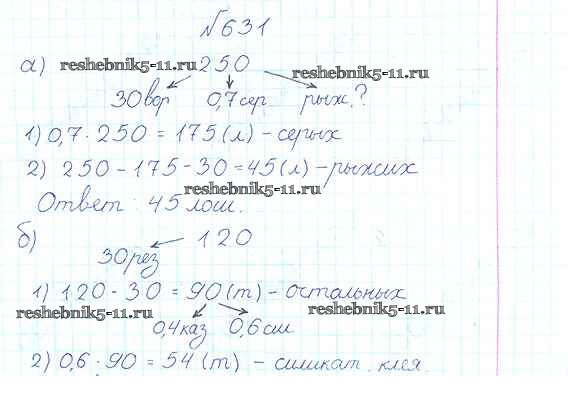 №631
а) reshebnik5-11.ru 250 reshebnik5-11.ru
30вор 0,7сер рыж.?
1) 0,7 · 250 = 175 (л) - серых
2) 250 - 175 - 30 = 45 (л) - рыжих
reshebnik5-11.ru
Ответ: 45 лош.
б) 120
reshebnik5-11.ru
30рез
1) 120 - 30 = 90 (т) - остальных
reshebnik5-11.ru reshebnik5-11.ru
0,4каз 0,6сил
2) 0,6 · 90 = 54 (т) - силикат. клея.